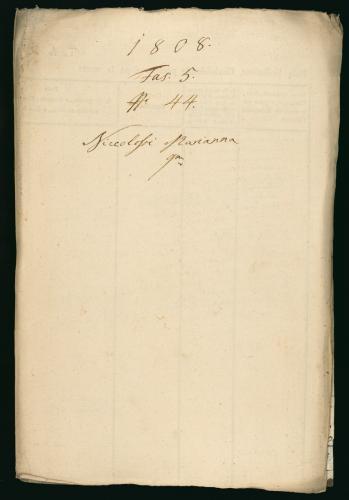 1808.
Fas: 5.
N: 44.
Niccolosi Marianna
qm